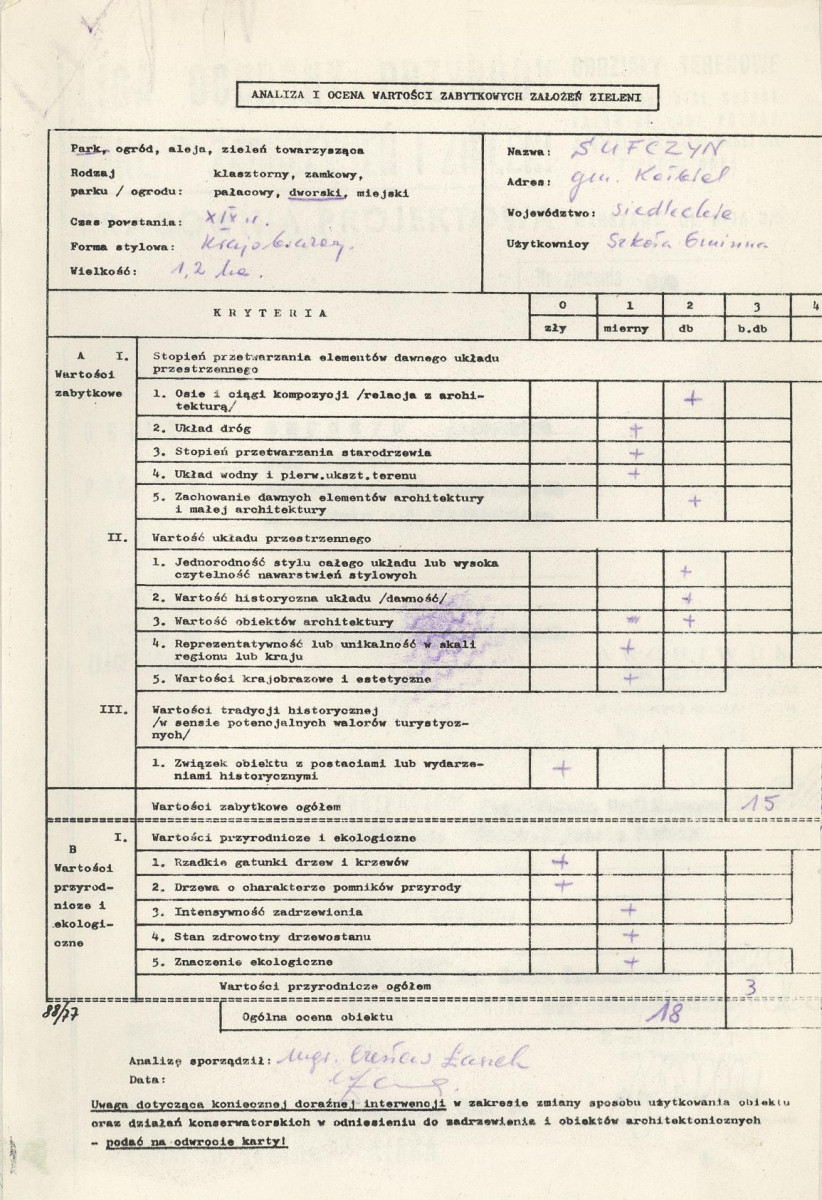 ANALIZA I OCENA WARTOŚCI ZABYTKOWYCH ZAŁOŻEŃ ZIELENI
Park, ogród, aleja, zieleń towarzysząca
Rodzaj klasztorny, zamkowy,
parku / ogrodu: pałacowy, dworski, miejski
Czas powstania: XIX w.
Forma stylowa: Krajobrazowy.
Wielkość: 1,2 ha.
Nazwa: SUFCZYN
Adres: gm. Kołbiel
Województwo: siedleckie
Użytkownicy Szkoła Gminna
KRYTERIA 0 1 2 3 4
zły mierny db b.db
A I. Stopień przetwarzania elementów dawnego układu
Wartości przestrzennego
zabytkowe 1. Osie i ciągi kompozycji /relacja z archi-
tekturą/ +
2. Układ dróg +
3. Stopień przetwarzania starodrzewia +
4. Układ wodny i pierw.ukszt.terenu +
5. Zachowanie dawnych elementów architektury
i małej architektury +
II. Wartość układu przestrzennego
1. Jednorodność stylu całego układu lub wysoka
czytelność nawarstwień stylowych +
2. Wartość historyczna układu /dawność/ +
3. Wartość obiektów architektury +
4. Reprezentatywność lub unikalność w skali
regionu lub kraju +
5. Wartości krajobrazowe i estetyczne +
III. Wartości tradycji historycznej
/w sensie potencjalnych walorów turystycz-
nych/
1. Związek obiektu z postaciami lub wydarze-
niami historycznymi +
Wartości zabytkowe ogółem 15
B I. Wartości przyrodnicze i ekologiczne
Wartości 1. Rzadkie gatunki drzew i krzewów +
przyrod- 2. Drzewa o charakterze pomników przyrody +
nicze i 3. Intensywność zadrzewienia +
ekologi- 4. Stan zdrowotny drzewostanu +
czne 5. Znaczenie ekologiczne +
Wartości przyrodnicze ogółem 3
88/77 Ogólna ocena obiektu 18
Analizę sporządził: mgr. Czesław
Data:
Uwaga dotycząca koniecznej doraźnej interwencji w zakresie zmiany sposobu użytkowania obiektu
oraz działań konserwatorskich w odniesieniu do zadrzewienia i obiektów architektonicznych
- podać na odwrocie karty!